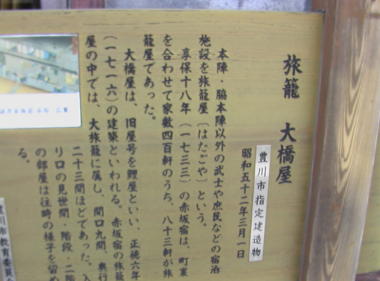 旅籠 大橋屋
豊川市指定建造物
昭和五十二年三月一日
本陣・脇本陣以外の武士や庶民などの宿泊
施設を旅籠屋(はたごや)という。
享保十八年(一七三三)の赤坂宿は、町裏
を合わせて家数四百軒のうち、八十三軒が旅
籠屋であった。
大橋屋は、旧屋号を鯉屋といい、正徳六年
(一七一六)の建築といわれる。赤坂宿の旅籠
屋の中では、大旅籠に属し、間口九間、奥行
二十三間ほどであった。入
り口の見世間・階段・二階
の部屋は往時の様子を留め
る。
豊川市教育委員会